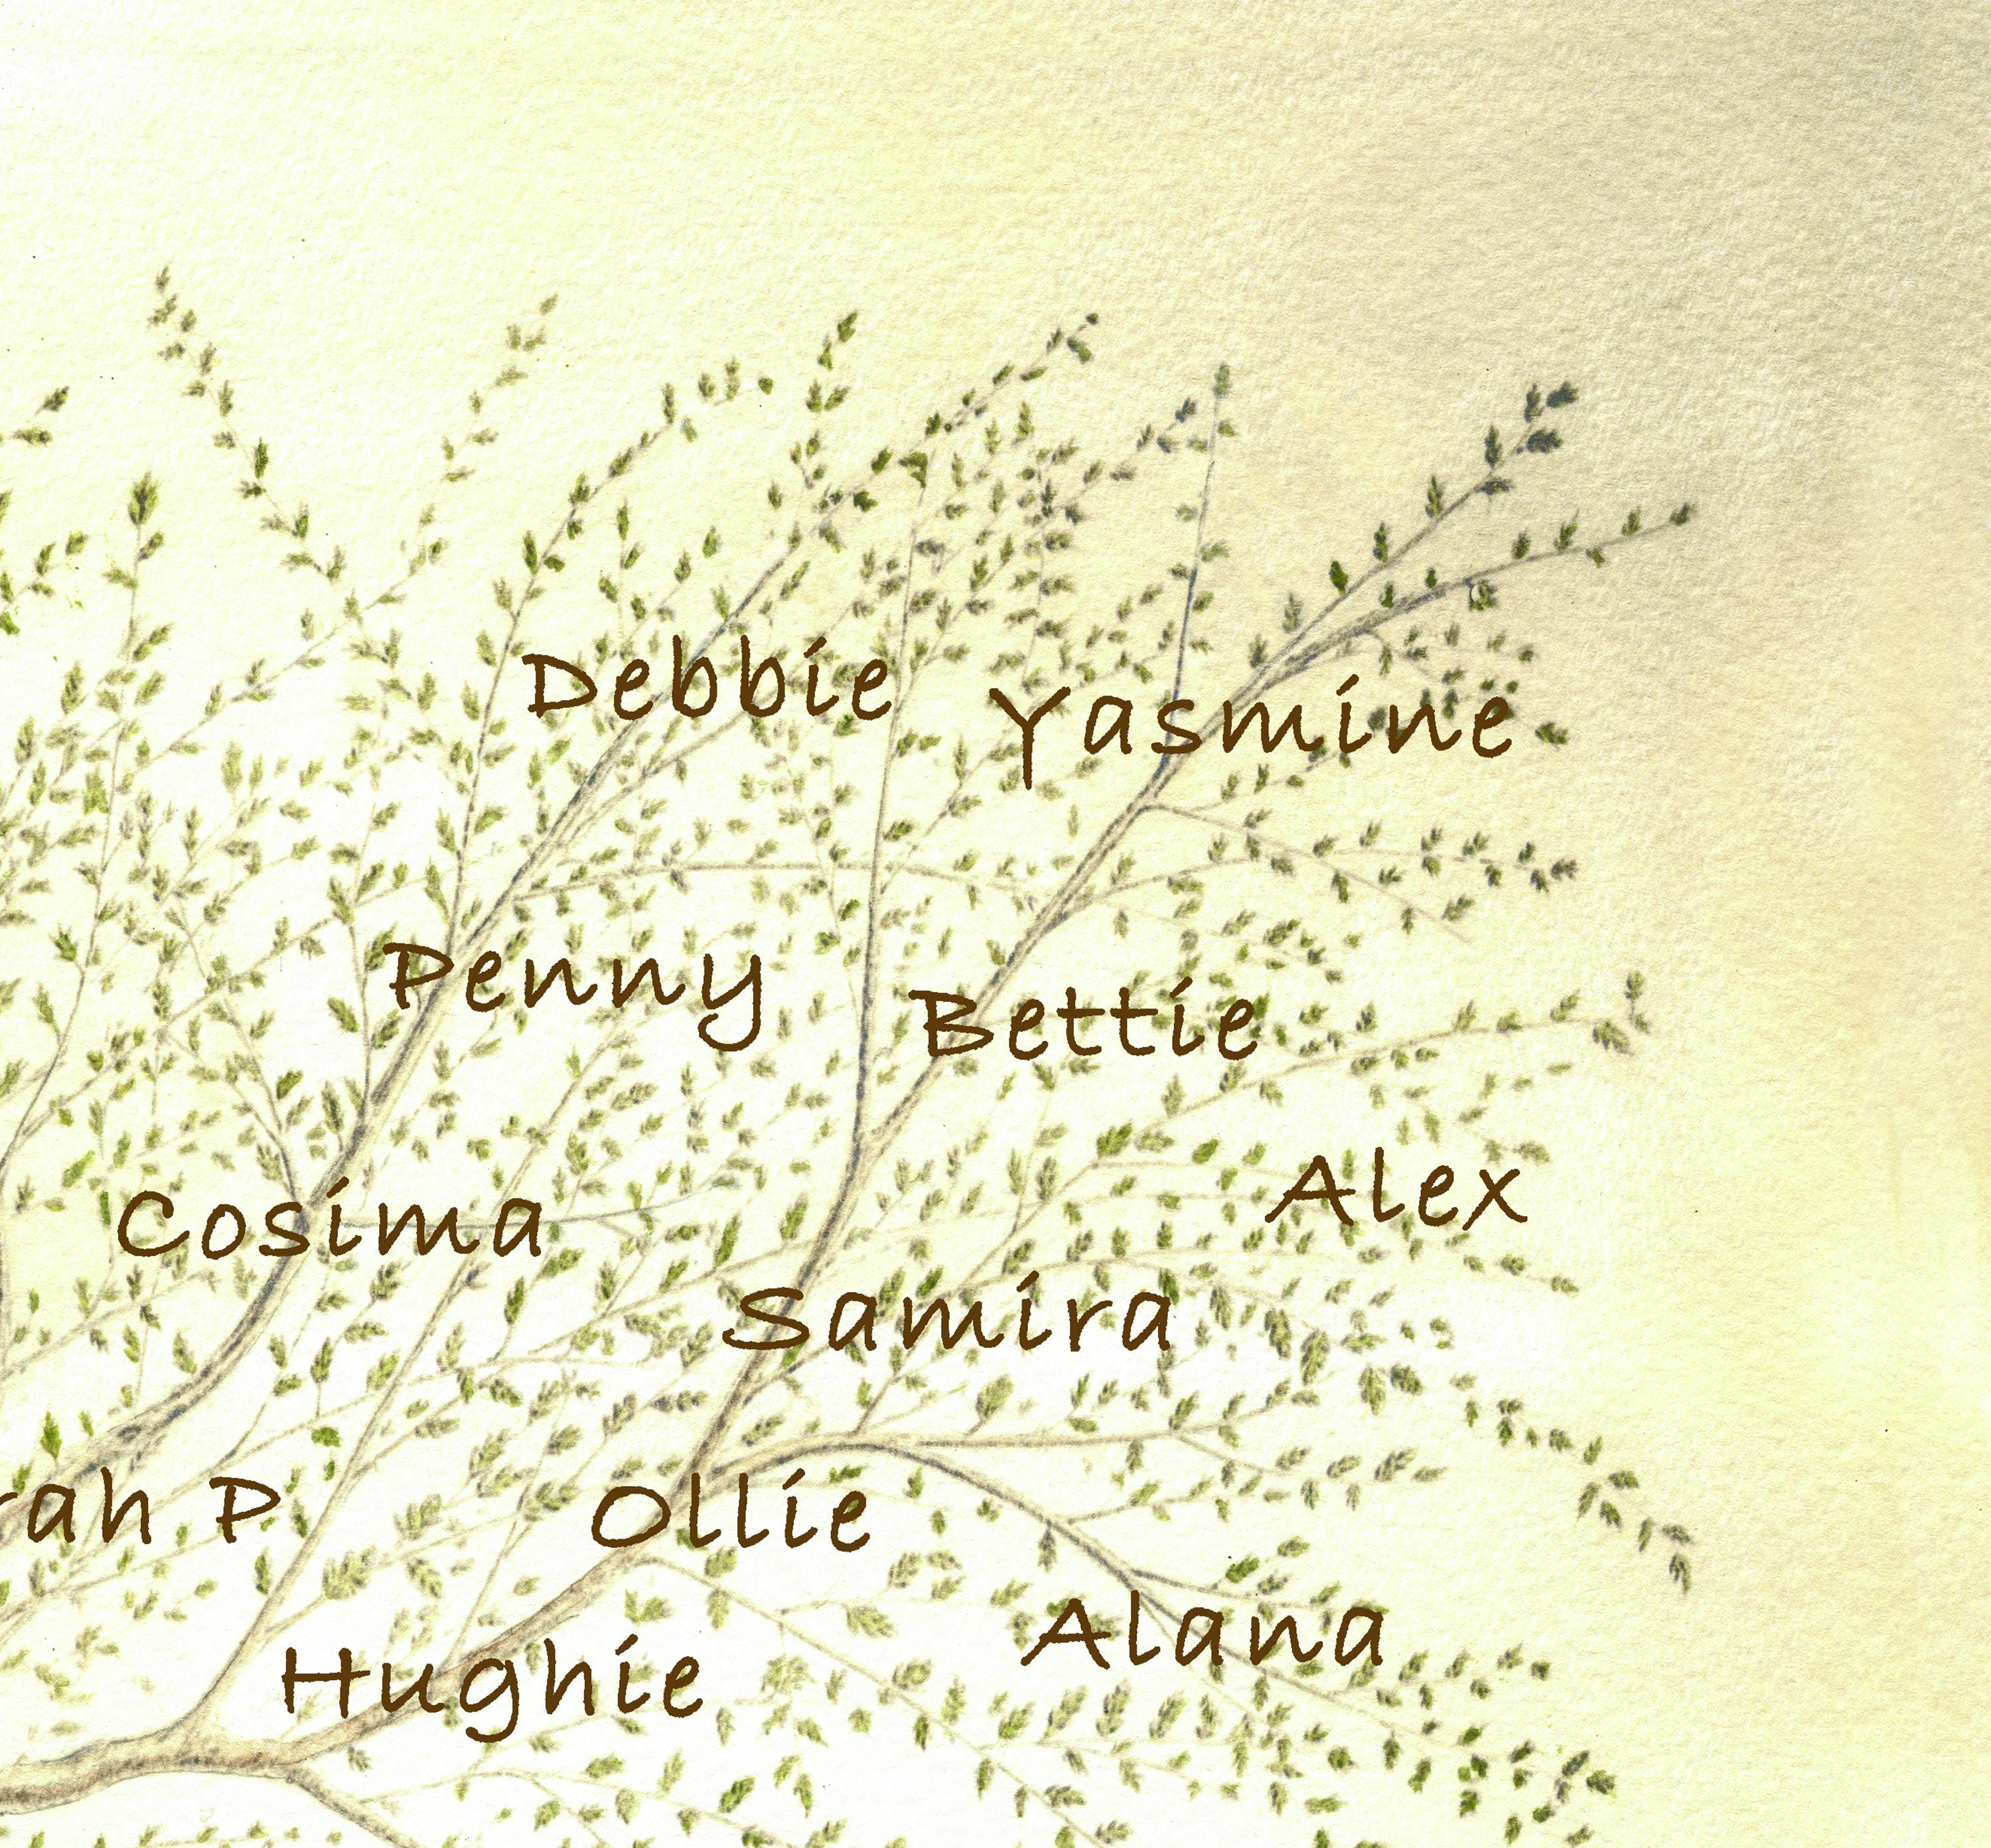 Debbie
Yasmine
Penny
Bettie
Alex
Cosima
Samira
rah P
Ollie
Alana
Hughie